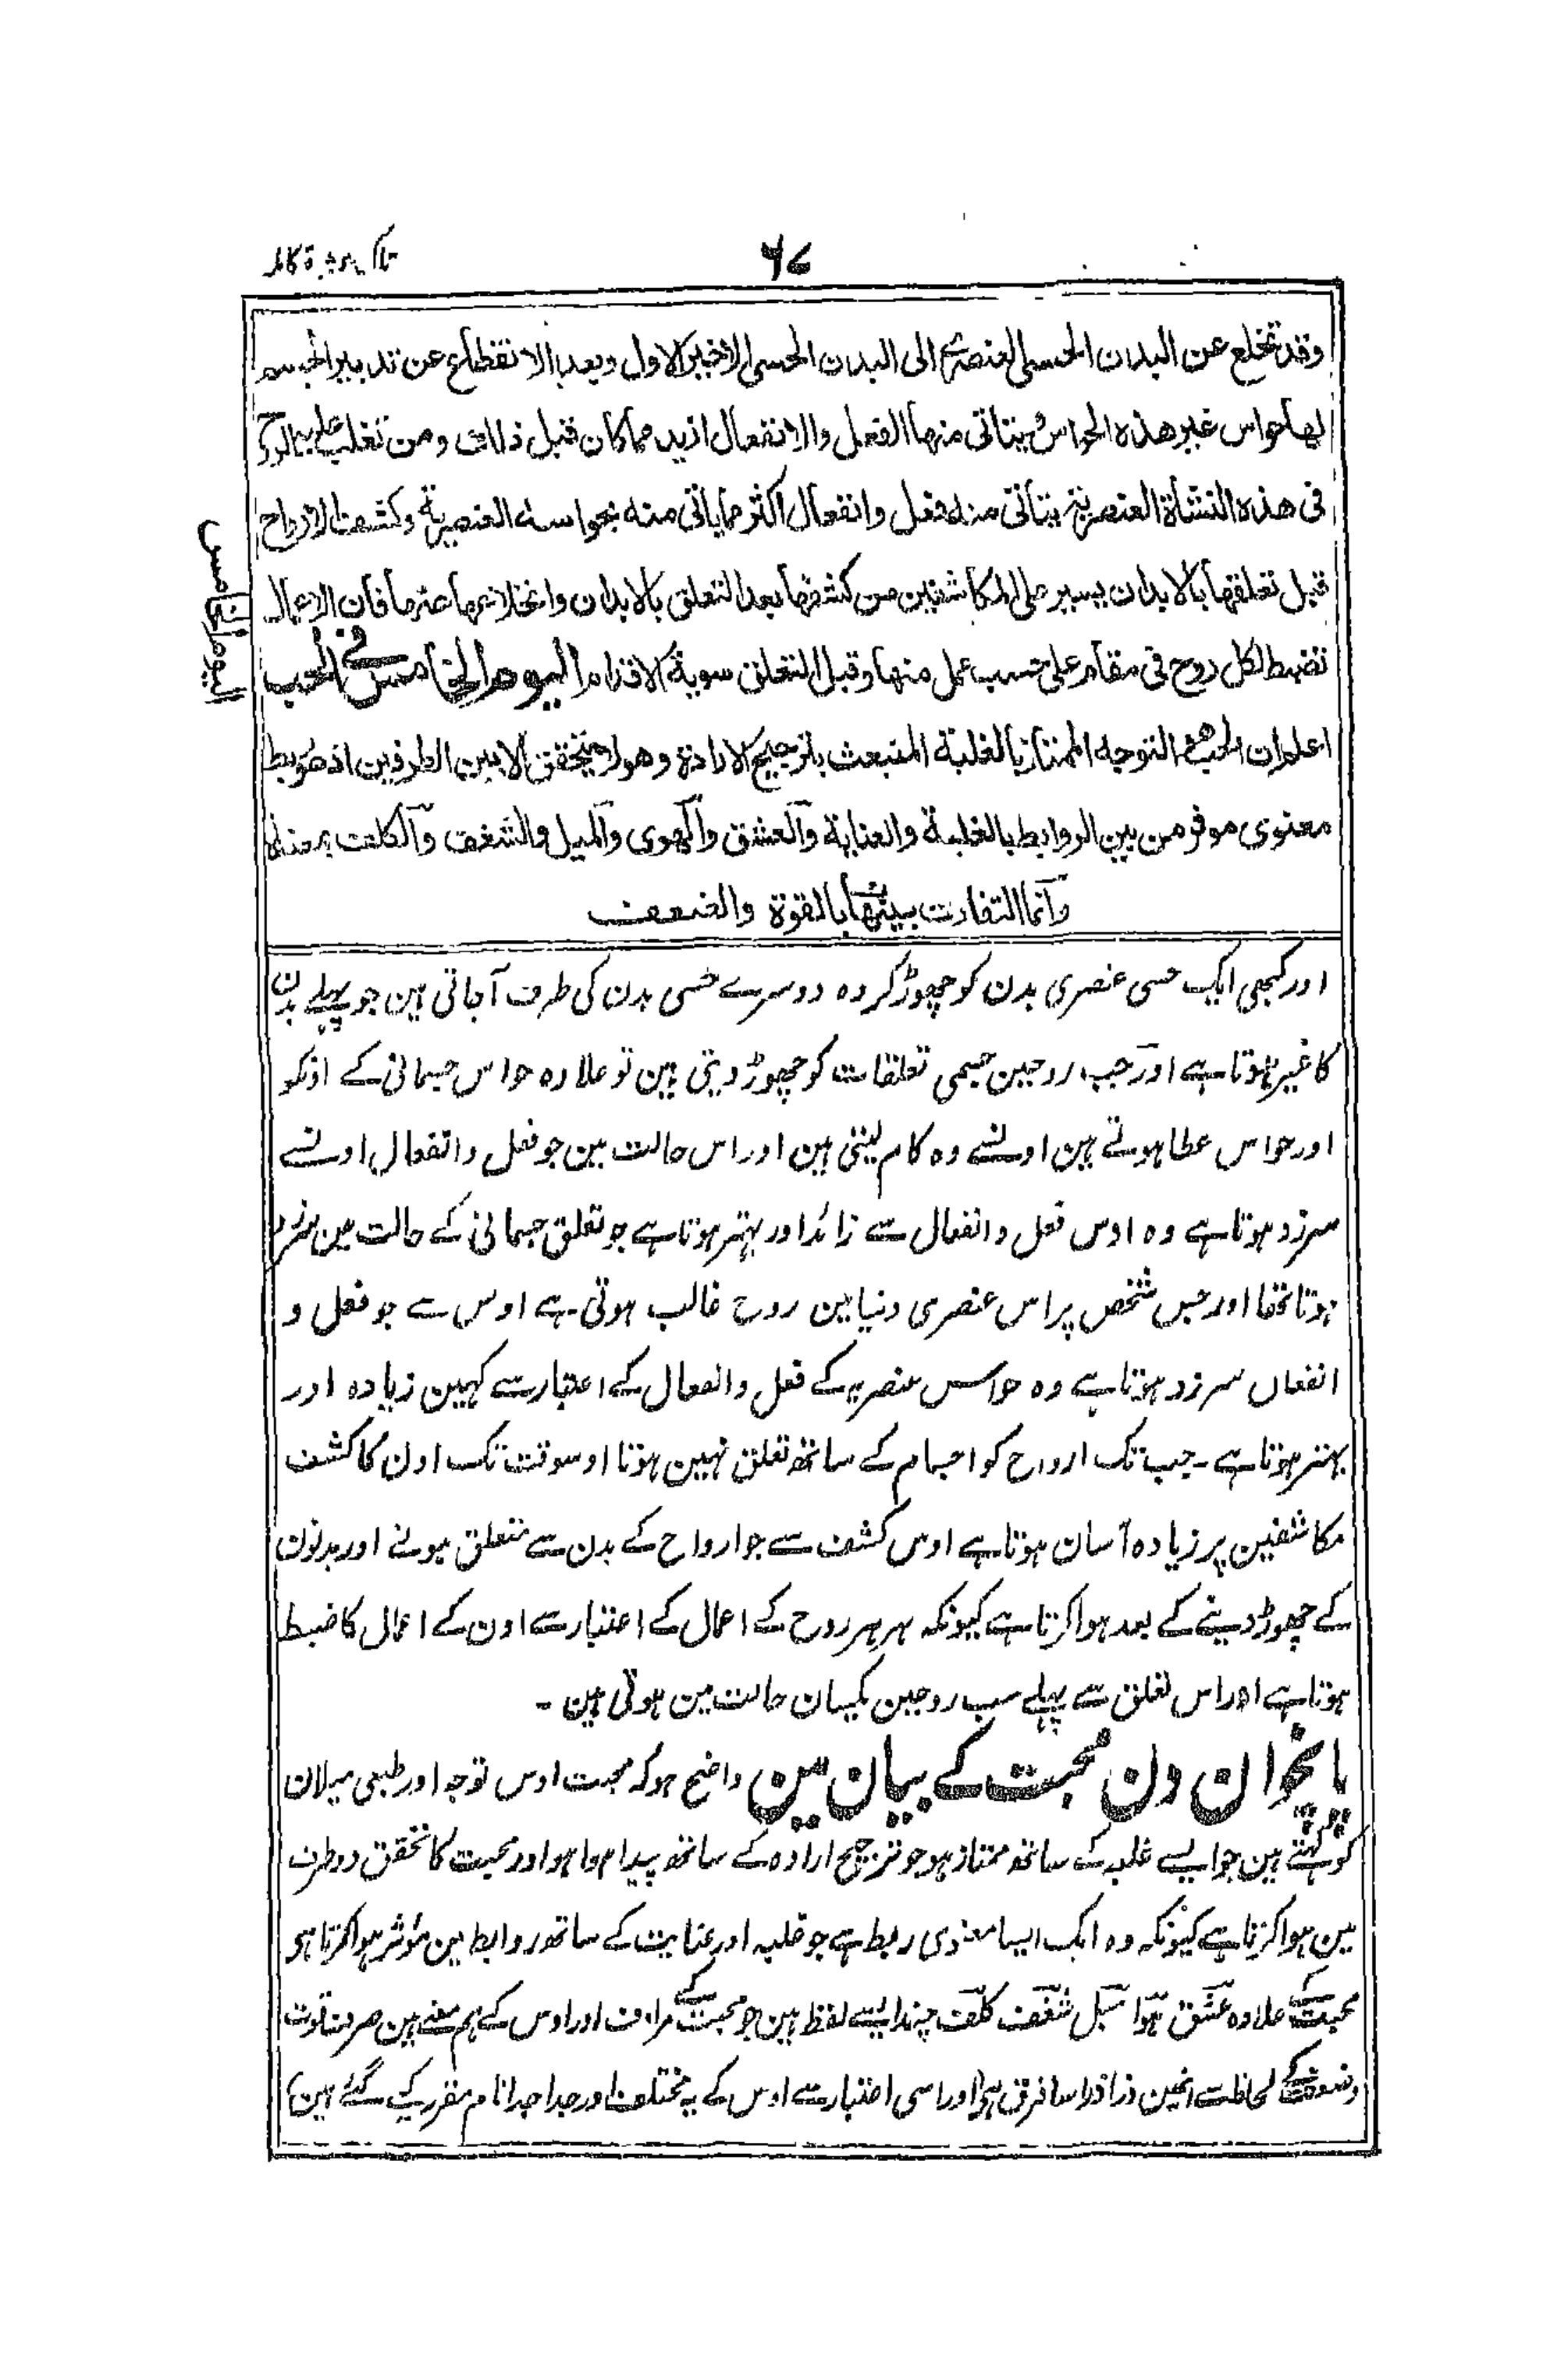 ۶۷
وقد تخلع عن البدن الحسی العنصری الی البدن الحسی الاخیر الاول وبعد الانقطاع عن تدبیر الجسم
لها حواس غیر هذه الحواس یتاتی منها الفعل والانفعال ازید مما کان قبل ذلك ومن تغلب علیه الروح
فی هذه النشأة العنصریة یتاتی منه فعل وانفعال اکثر مما یاتی منه بحواسه العنصریة وکشف الارواح
قبل تعلقها بالابدان یسیر علی المکاشفین من کشفها بعد التعلق بالابدان وانخلاعها عنها فان الاعمال
تضبط لکل روح فی مقام علی حسب عمل منها وقبل التعلق سویة الاقدام الیوم الخامس فی الحب
الیوم الخامس
اعلم ان الحب هو التوجه الممتاز بالغلبة المنبعث بترجیح الارادة وهو لا یتحقق الا بین الطرفین اذ هو ربط
معنوی موفر من بین الروابط بالغلبة والعنایة والعشق والهوی والمیل والشغف والکلف
وانما التفاوت بینها بالقوة والضعف
اور کبھی ایک حسی عنصری بدن کو چھوڑ کر وہ دوسرے حسی بدن کی طرف آجاتی ہین جو پہلے بدن
کا غیر ہوتا ہے اور جب روحین جسمی تعلقات کو چھوڑ دیتی ہین تو علاوہ حواس جسمانی کے اونکو
اور حواس عطا ہوتے ہین اونسے وہ کام لیتی ہین اور اس حالت مین جو فعل و انفعال اونسے
سرزد ہوتا ہے وہ اوس فعل و انفعال سے زائد اور بہتر ہوتا ہے جو تعلق جسمانی کے حالت مین سرزد
ہوتا تھا اور جس شخص پر اس عنصری دنیا مین روح غالب ہوتی ہے اوس سے جو فعل و
انفعال سرزد ہوتا ہے وہ حواس عنصریہ کے فعل و انفعال کے اعتبار سے کہین زیادہ اور
بہتر ہوتا ہے ۔ جب تک ارواح کو اجسام کے ساتھ تعلق نہین ہوتا اوسوقت تک اون کا کشف
مکاشفین پر زیادہ آسان ہوتا ہے اوس کشف سے جو ارواح کے بدن سے متعلق ہونے اور بدنون
کے چھوڑ دینے کے بعد ہوا کرتا ہے کیونکہ ہر ہر روح کے اعمال کے اعتبار سے اون کے اعمال کا ضبط
ہوتا ہے اور اس تعلق سے پہلے سب روحین یکسان حالت مین ہوتی ہین ۔
پانچوان دن محبت کے بیان مین واضح ہو کہ محبت اوس توجہ اور طبعی میلان
کو کہتے ہین جو ایسے غلبہ کے ساتھ ممتاز ہو جو ترجیح ارادہ کے ساتھ پیدا ہوا ہو اور محبت کا تحقق دو طرف
مین ہوا کرتا ہے کیونکہ وہ ایک ایسا معنوی ربط ہے جو غلبہ اور عنایت کے ساتھ روابط مین مؤثر ہوا کرتا ہی
محبت کے علاوہ عشق ہوا میل شغف کلف چند ایسے لفظ ہین جو محبت کے مرادف اور اوس کے ہم معنے ہین صرف قوت
وضعف کے لحاظ سے انمین ذرا ذرا سا فرق ہی اور اسی اعتبار سے اوس کے یہ مختلف اور جدا جدا نام مقرر کیے گئے ہین)